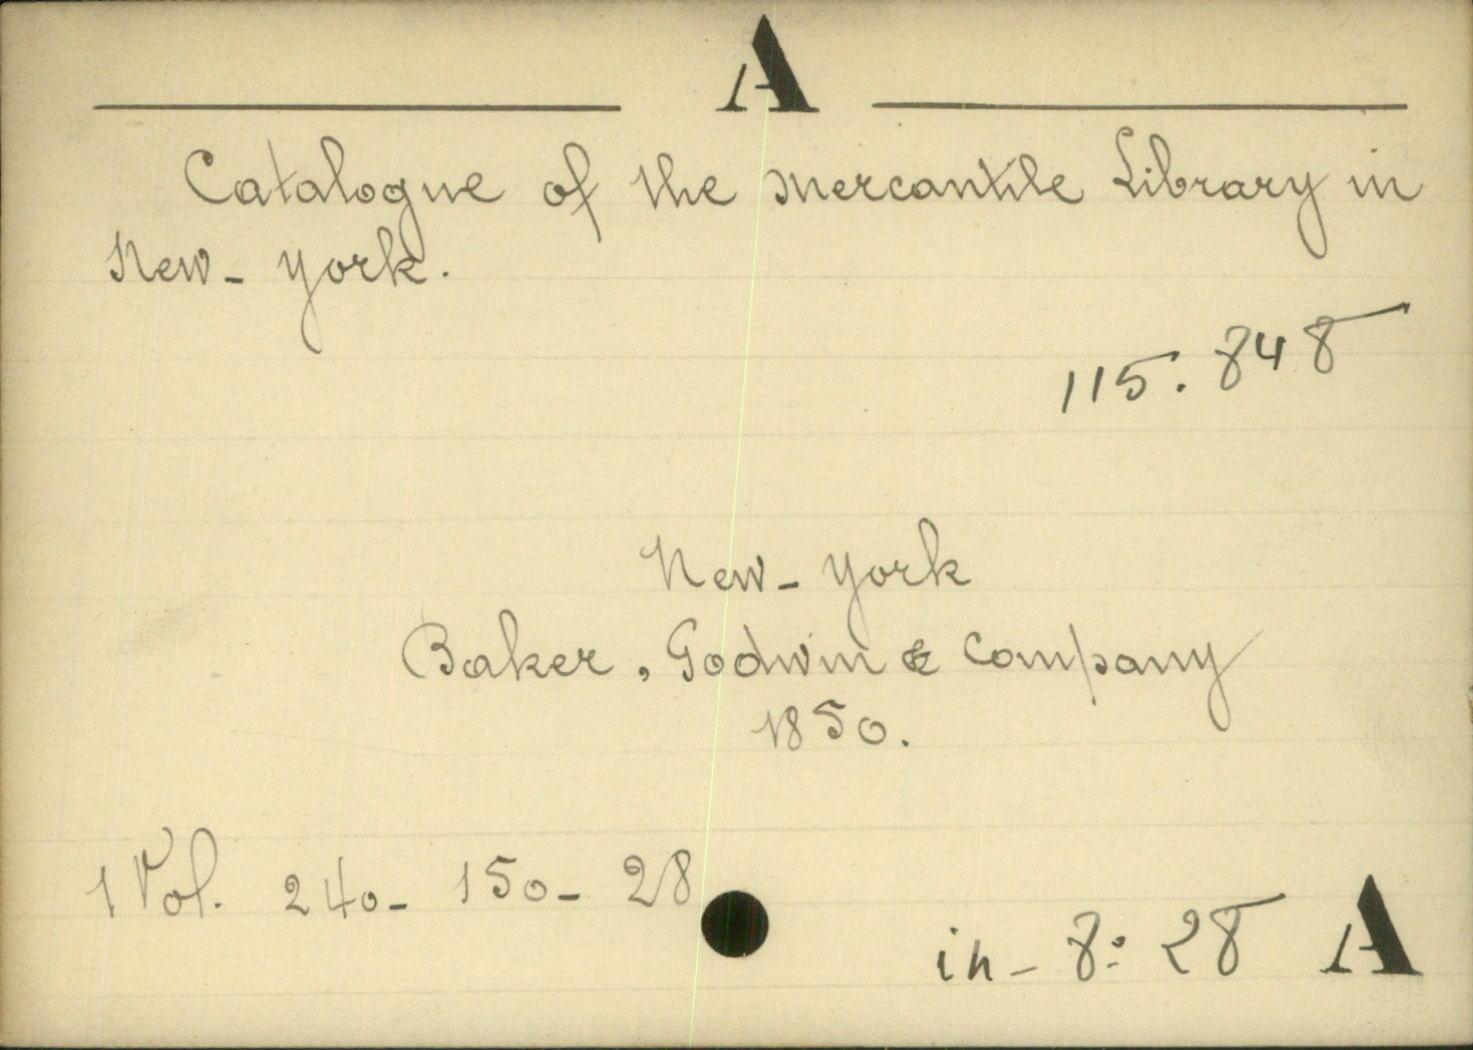 A
Catalogue of the Mercantile Library in
New-York.
115.848
New-York
Baker, Godwin & Company
1850.
1 Vol. 240-150-28
in-8º 28 A